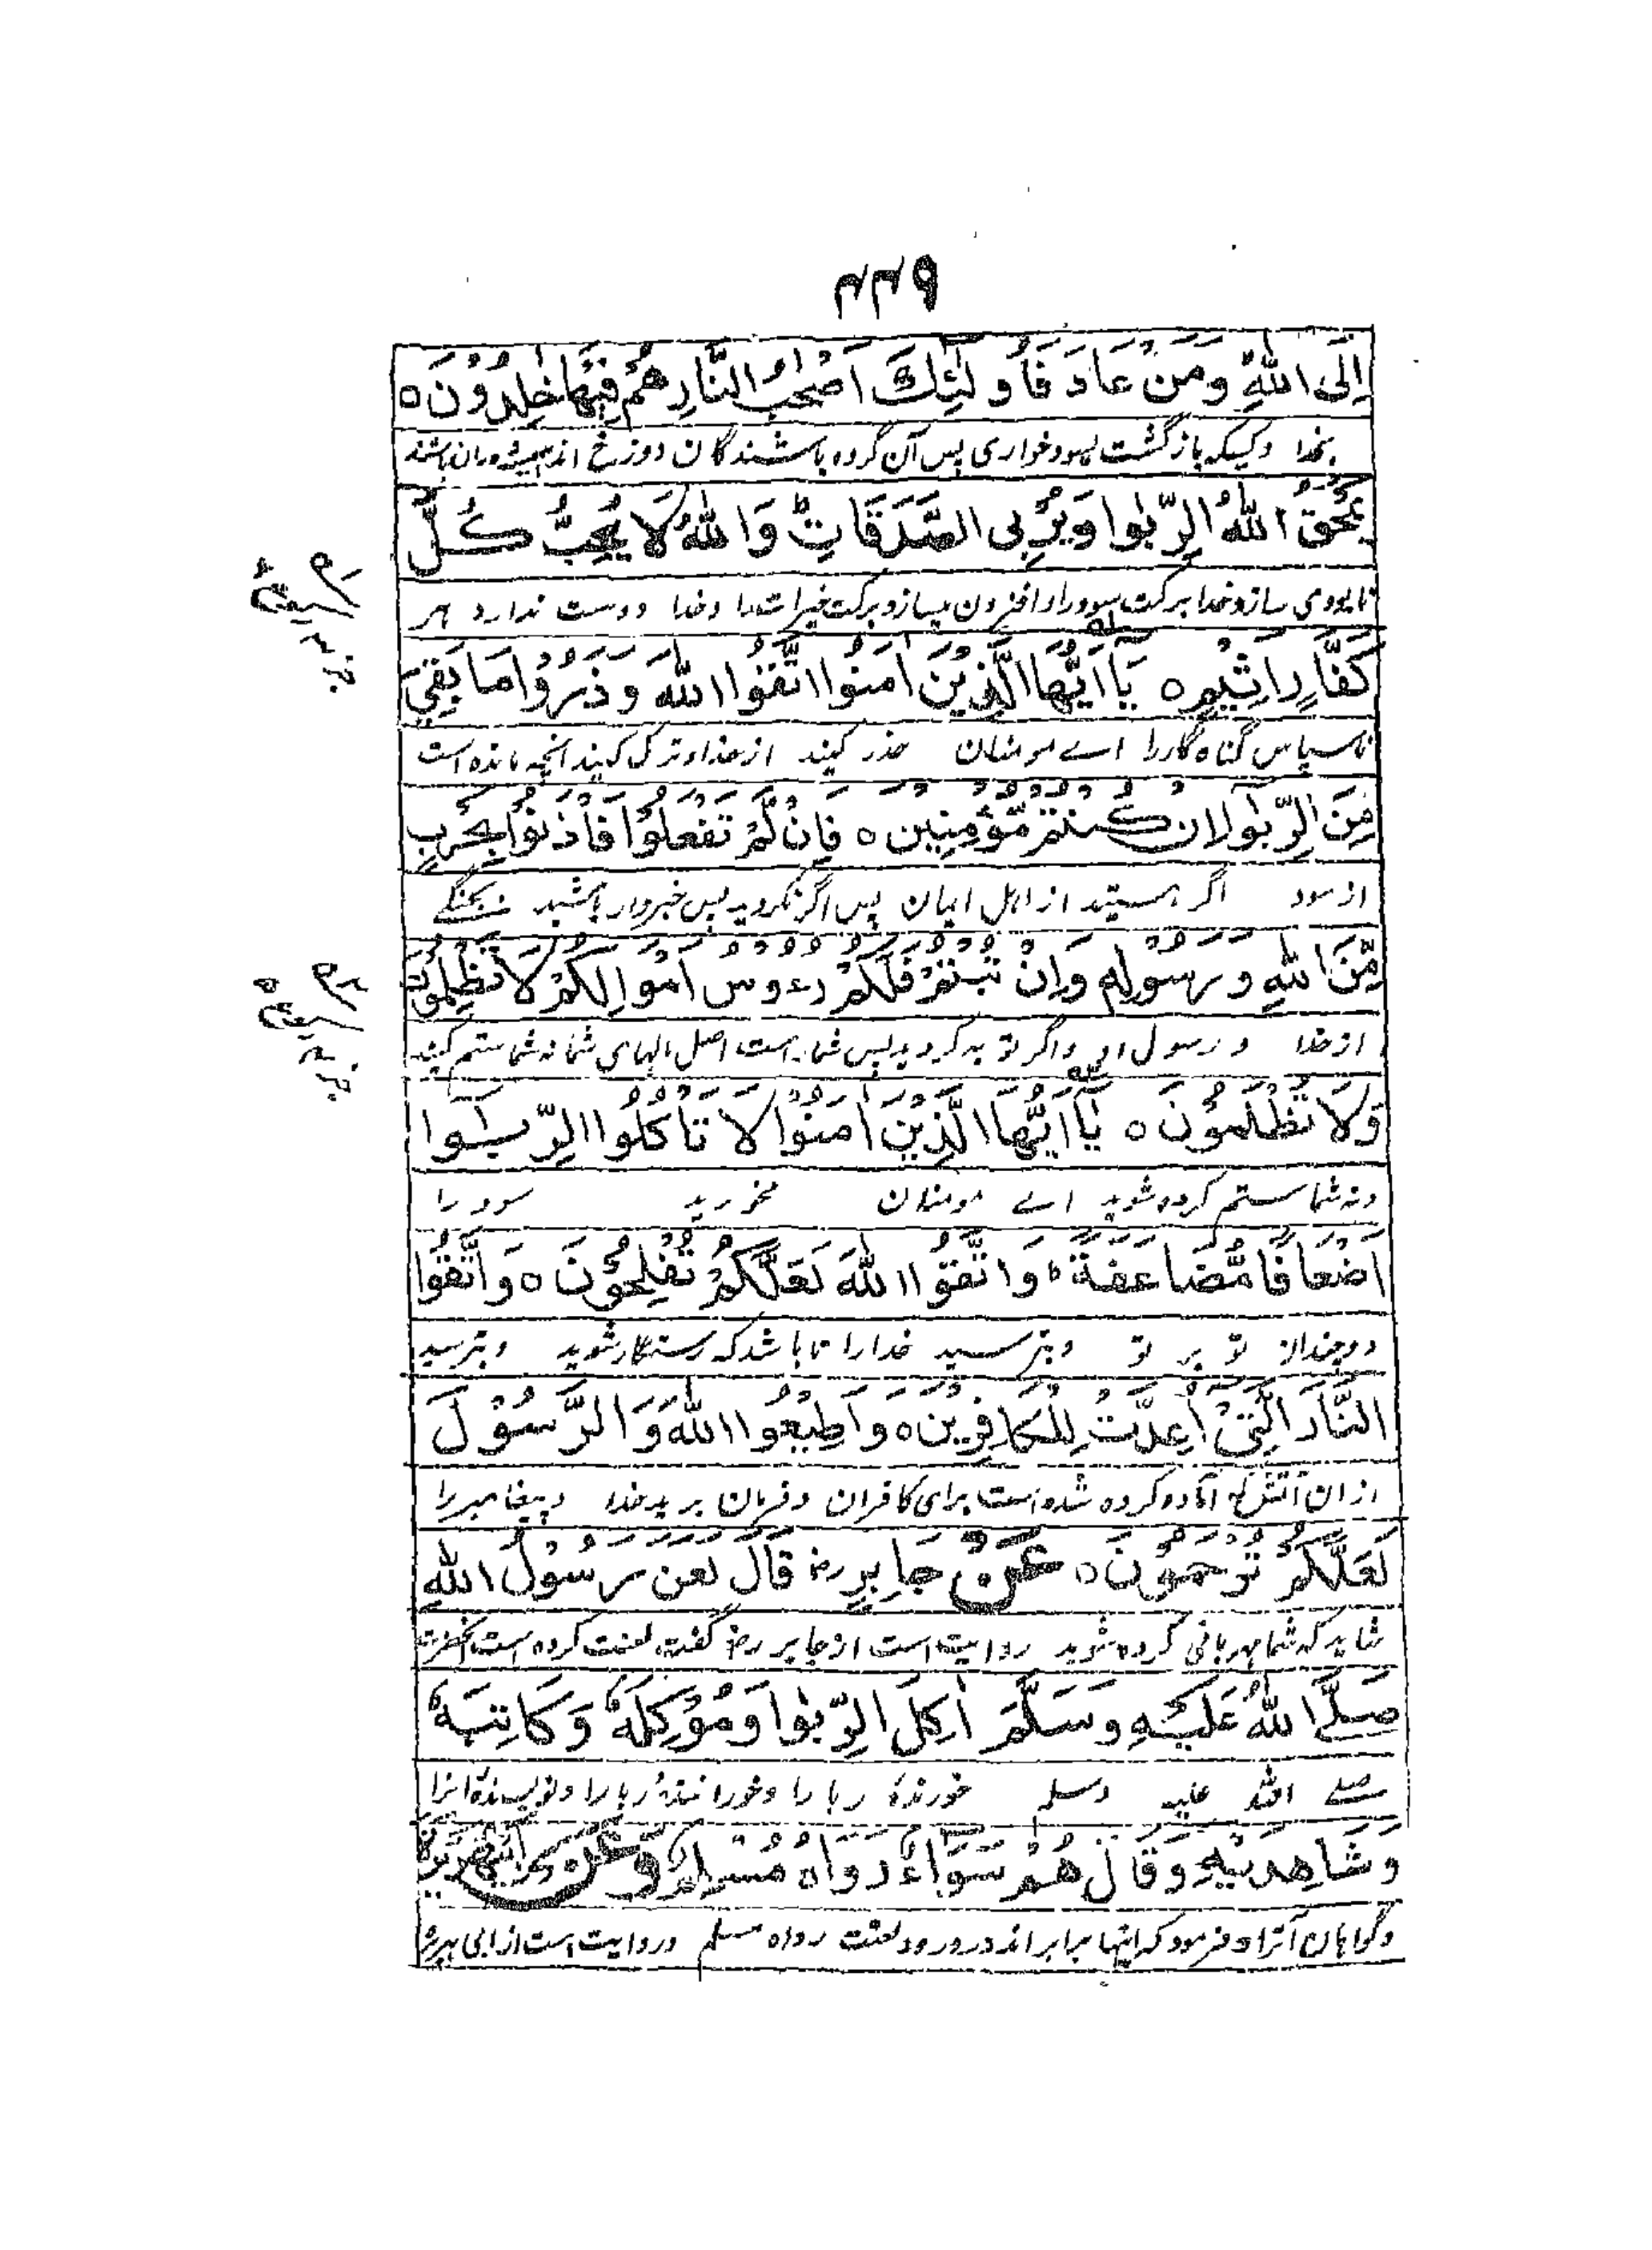 ۲۲۹
اِلَى اللّٰهِ وَمَنْ عَادَ فَاُولٰٓئِكَ اَصْحٰبُ النَّارِ هُمْ فِيْهَا خٰلِدُوْنَ ہ
بخدا وکسیکه بازگشت بسودخواری پس آن گروه باشندگان دوزخ اند
يَمْحَقُ اللّٰهُ الرِّبٰوا وَيُرْبِى الصَّدَقَاتِ ط وَاللّٰهُ لَا يُحِبُّ كُلَّ
نابودمی سازد خدا برکت سود را و افزون میسازد برکت خیرات را و خدا دوست ندارد هر
كَفَّارٍ اَثِيْمٍ ہ يَآ اَيُّهَا الَّذِيْنَ اٰمَنُوا اتَّقُوا اللّٰهَ وَذَرُوْا مَا بَقِىَ
ناسپاس گناه گار را اے مومنان حذر کنید از خدا و ترک کنید آنچه مانده است
مِنَ الرِّبٰوا اِنْ كُنْتُمْ مُّؤْمِنِيْنَ ہ فَاِنْ لَّمْ تَفْعَلُوْا فَأْذَنُوْا بِحَرْبٍ
از سود اگر هستید از اهل ایمان پس اگر نکردید پس خبردار باشید بجنگے
مِّنَ اللّٰهِ وَرَسُوْلِهٖ وَاِنْ تُبْتُمْ فَلَكُمْ رُءُوْسُ اَمْوَالِكُمْ لَا تَظْلِمُوْنَ
از خدا و رسول او و اگر توبه کردید پس شما راست اصل مالهای شما نه شما ستم کنید
وَلَا تُظْلَمُوْنَ ہ يَآ اَيُّهَا الَّذِيْنَ اٰمَنُوْا لَا تَاْكُلُوا الرِّبٰوا
ونه شما ستم کرده شوید اے مومنان مخورید سود را
اَضْعَافًا مُّضَاعَفَةً وَاتَّقُوا اللّٰهَ لَعَلَّكُمْ تُفْلِحُوْنَ ہ وَاتَّقُوا
دوچندان تو بر تو وبترسید خدا را تا باشد که رستگار شوید وبترسید
النَّارَ الَّتِىْ اُعِدَّتْ لِلْكَافِرِيْنَ ہ وَاَطِيْعُوا اللّٰهَ وَالرَّسُوْلَ
ازان آتش که آماده کرده شده است برای کافران وفرمان برید خدا وپیغامبر را
لَعَلَّكُمْ تُرْحَمُوْنَ ہ عَنْ جَابِرٍ رض قَالَ لَعَنَ رَسُوْلُ اللّٰهِ
شاید که شما مهربانی کرده شوید روایت است از جابر رض گفت لعنت کرده است آنحضرت
صَلَّى اللّٰهُ عَلَيْهِ وَسَلَّمَ اٰكِلَ الرِّبٰوا وَمُوْكِلَهٗ وَكَاتِبَهٗ
صلے اللہ علیہ وسلم خورندهٔ ربا را وخورانندهٔ ربا را ونویسندهٔ آنرا
وَشَاهِدَيْهِ وَقَالَ هُمْ سَوَاءٌ رَوَاهُ مُسْلِمٌ وَعَنْ اَبِىْ هُرَيْرَةَ
وگواهان آنرا وفرمود که اینها برابر اند در ورود لعنت رواه مسلم وروایت است از ابی هریره